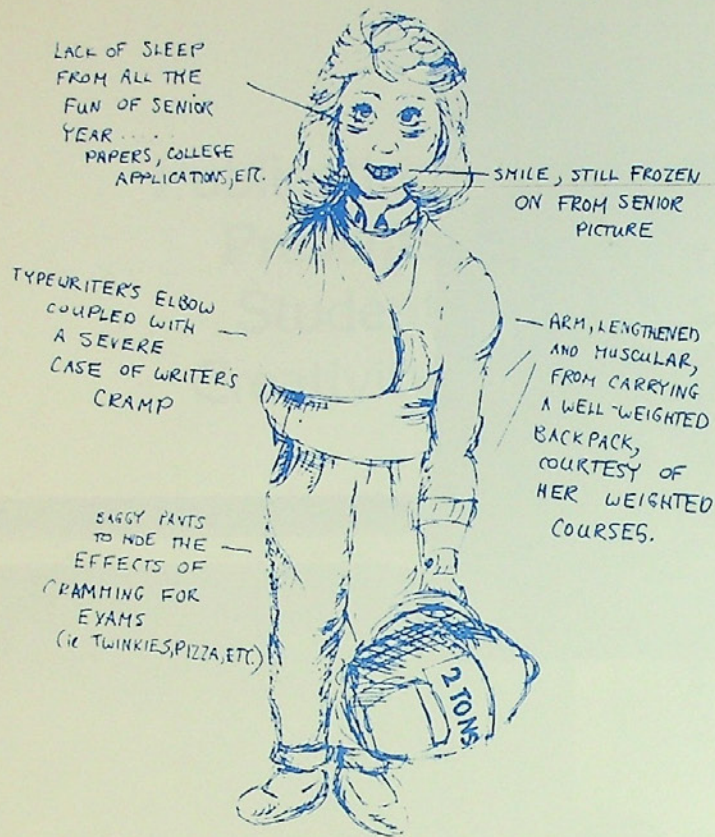 LACK OF SLEEP
FROM ALL THE
FUN OF SENIOR
YEAR .....
PAPERS, COLLEGE
APPLICATIONS, ETC.
SMILE, STILL FROZEN
ON FROM SENIOR
PICTURE
TYPEWRITER'S ELBOW
COUPLED WITH
A SEVERE
CASE OF WRITER'S
CRAMP
ARM, LENGTHENED
AND MUSCULAR,
FROM CARRYING
A WELL-WEIGHTED
BACKPACK,
COURTESY OF
HER WEIGHTED
COURSES.
BAGGY PANTS
TO HIDE THE
EFFECTS OF
CRAMMING FOR
EXAMS
(ie TWINKIES, PIZZA, ETC.)
2 TONS